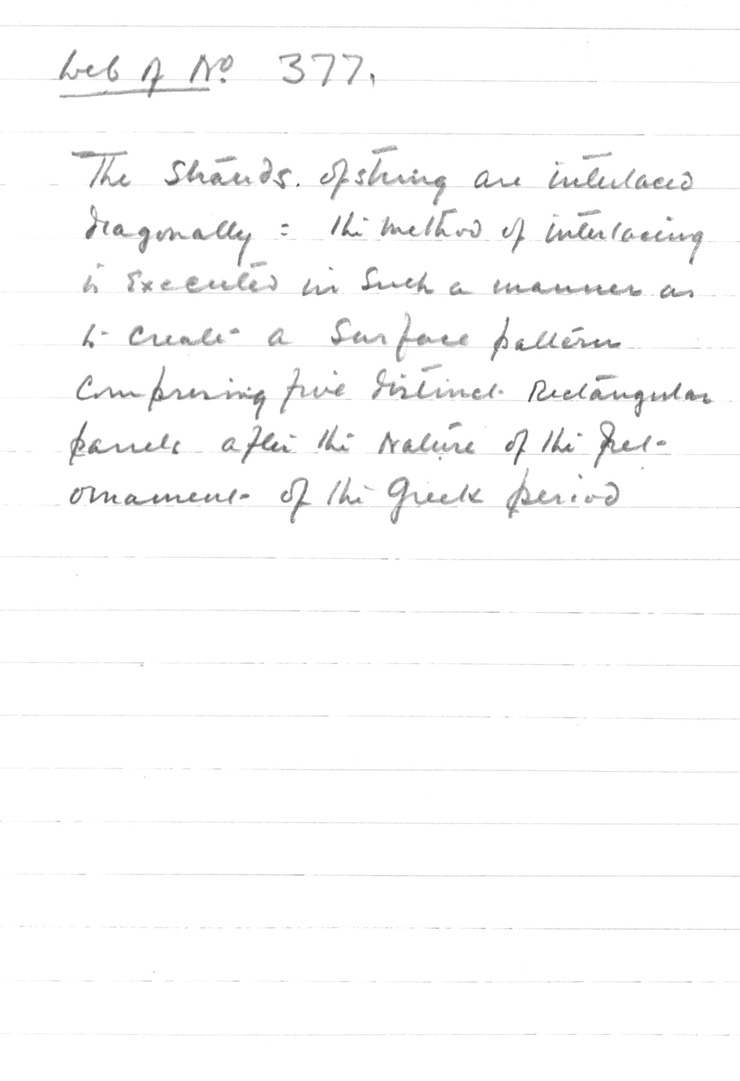 Web of No. 377.
The Strands. of string are interlaced
diagonally = the method of interlacing
is Executed in Such a manner as
to create a Surface pattern
Comprising five distinct Rectangular
panels after the Nature of the fret-
ornament of the Greek period